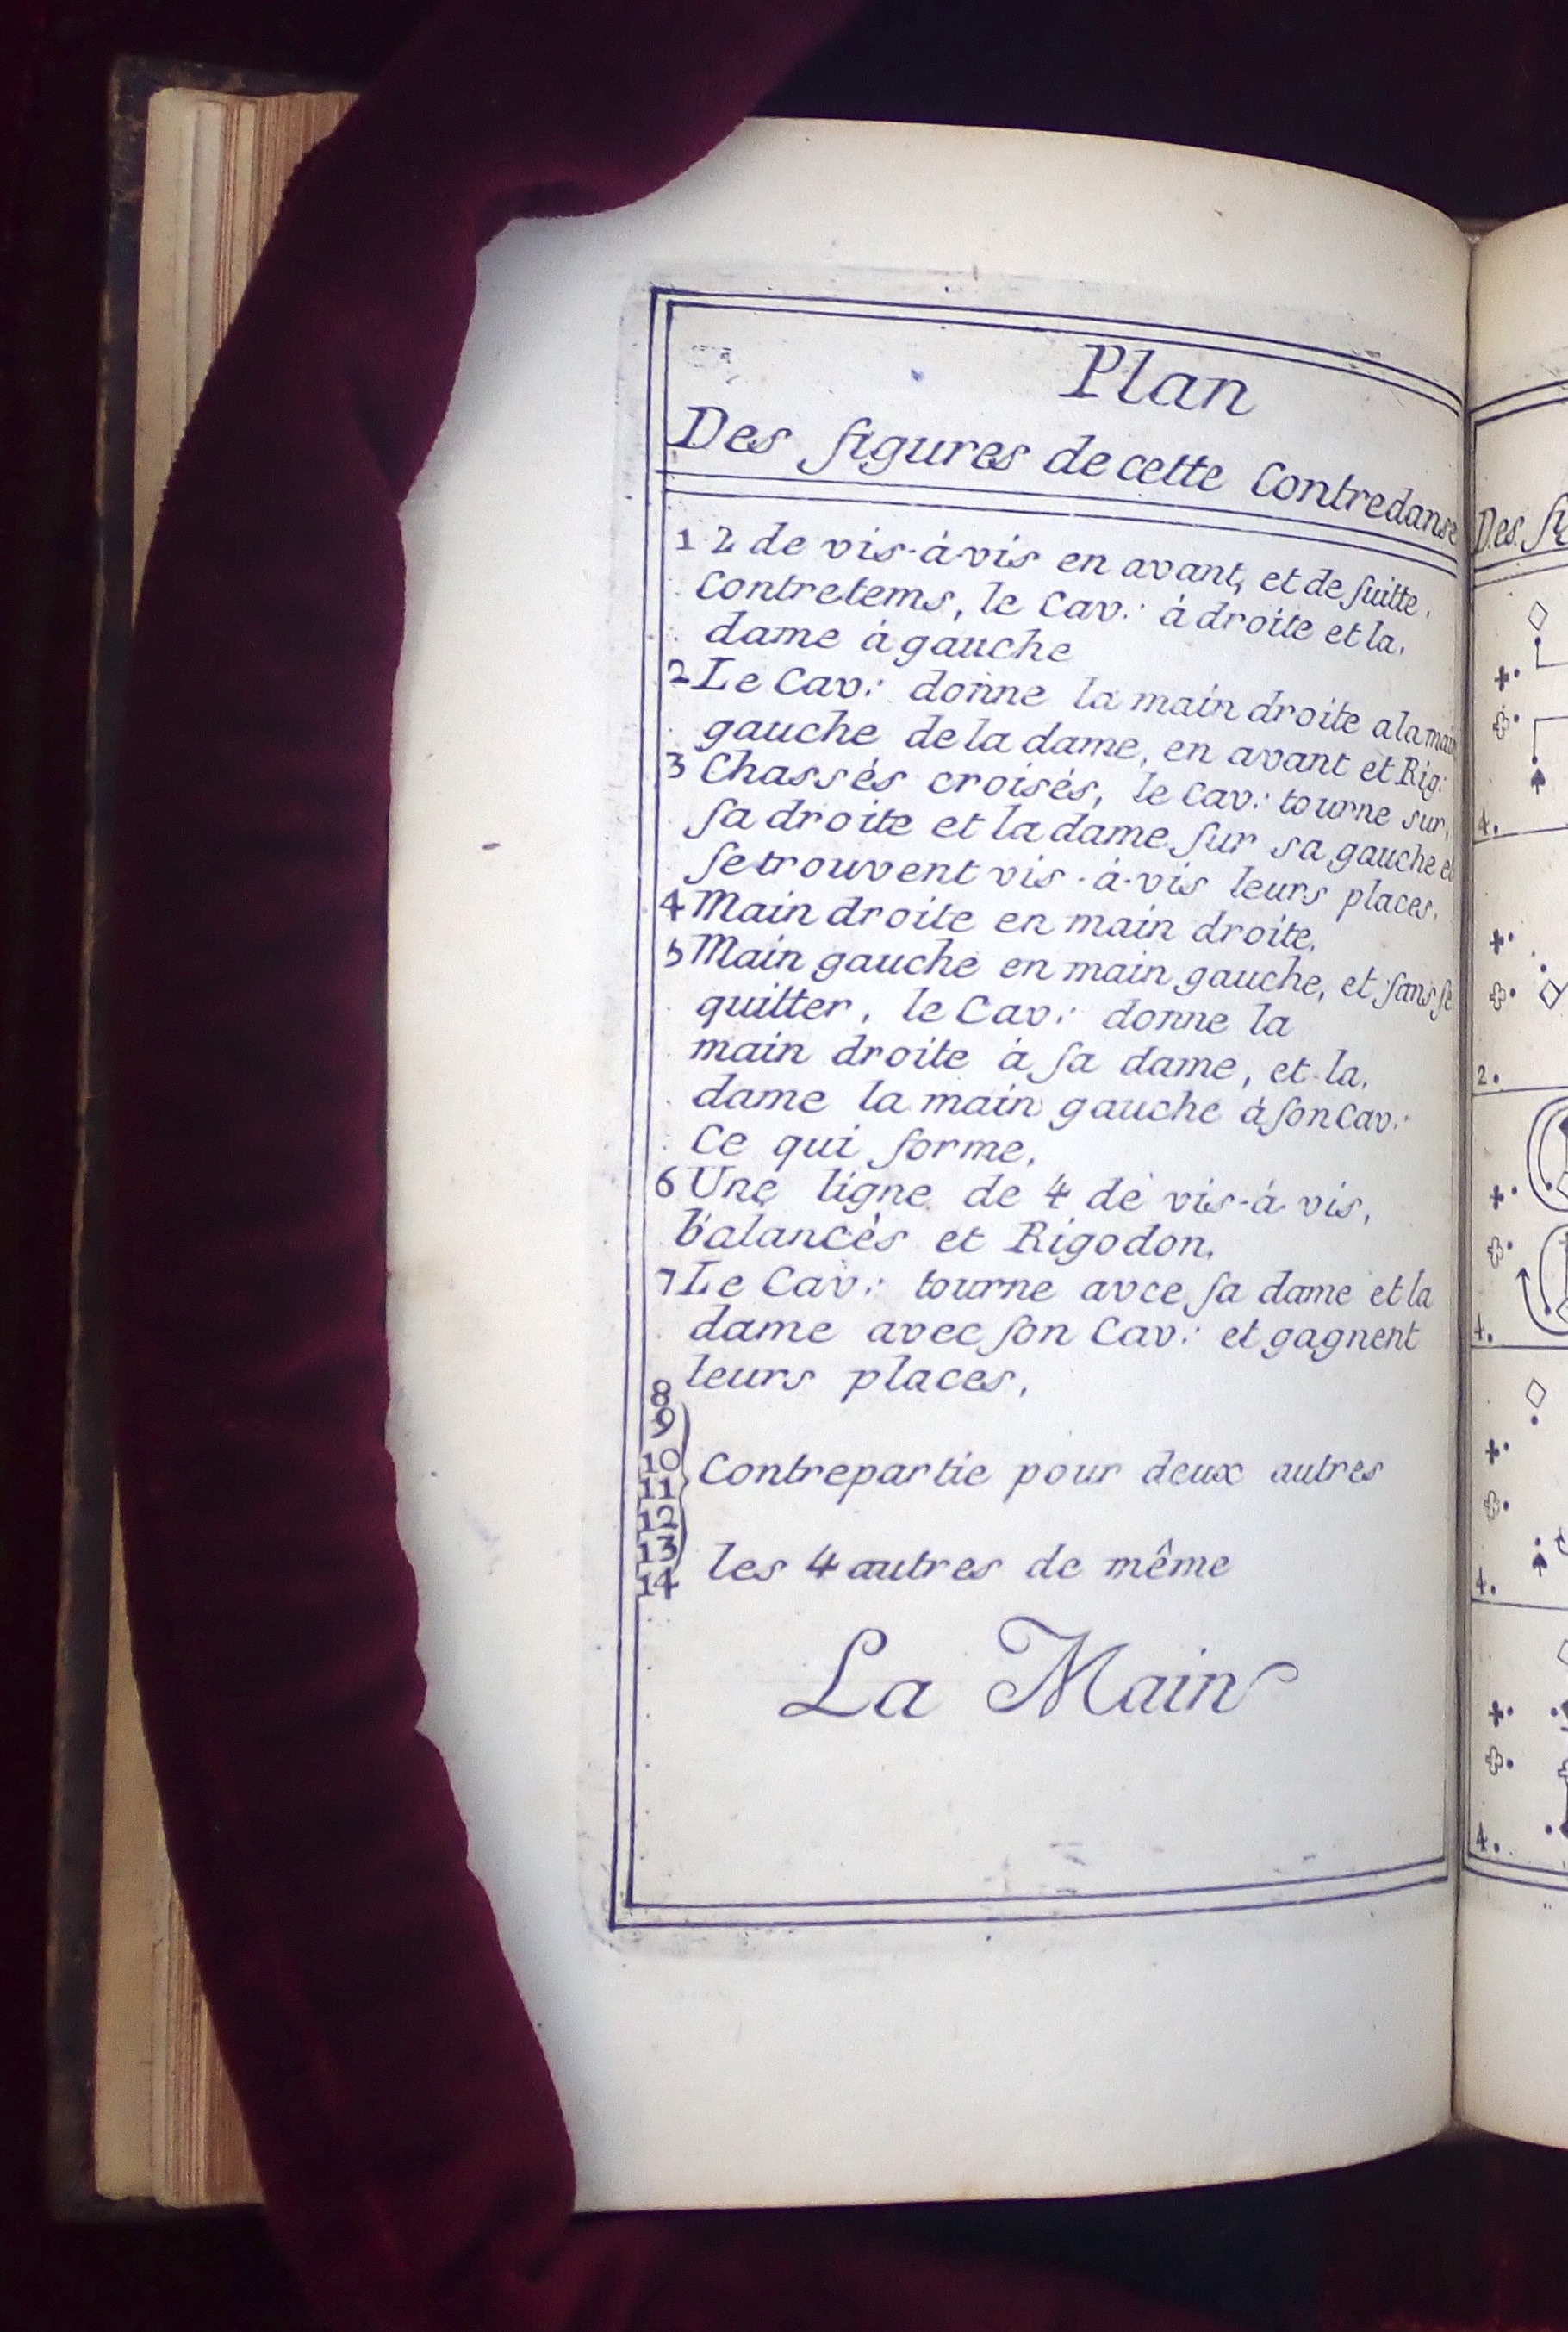 Plan
Des figures de cette Contredanse
1 2 de vis-à-vis en avant, et de suitte.
Contretems, le Cav.: à droite et la.
dame à gauche
2 Le Cav.: donne la main droite a la main
gauche de la dame, en avant et Rig:
3 Chassés croisés, le Cav.: tourne sur,
sa droite et la dame sur sa gauche et
se trouvent vis-à-vis leurs places.
4 Main droite en main droite.
5 Main gauche en main gauche, et sans se
quitter, le Cav: donne la
main droite à sa dame, et la.
dame la main gauche à son Cav.:
Ce qui forme.
6 Une ligne de 4 de vis-à-vis,
balancés et Rigodon.
7 Le Cav.: tourne avce sa dame et la
dame avec son Cav.: et gagnent
leurs places.
8
9
10
11 Contrepartie pour deux autres
12
13
14 les 4 autres de même
La Main
Des
4.
2.
4.
4.
4.